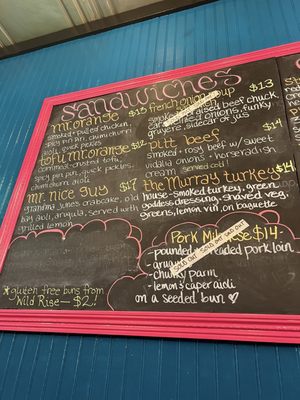 Sandwiches
mr. orange $13
smoked + pulled chicken,
spicy mr. aji, chimichurri
aioli, quick pickles
tofu mr. orange $12
cornmeal-crusted tofu,
quick pickles,
chimichurri aioli
mr. nice guy $17
grandma june's crabcake, old
bay aioli, arugula, served with
grilled lemon
* gluten free buns from
Wild Rise — $2!
french onion soup $13
braised beef chuck,
onions, funky
gruyere, side car of jus
pitt beef $14
smoked + rosy beef w/ sweet
vidalia onions + horseradish
cream served cold!
the Murray turkey $14
house-smoked turkey, green
goddess dressing, shaved veg,
greens, lemon vin, on baguette
Pork Milanese $14-
SOLD OUT SOLD OUT SOLD OUT
- pounded + breaded pork loin
- arugula
SOLD OUT
- chunky parm
- lemon + caper aioli
on a seeded bun ♡